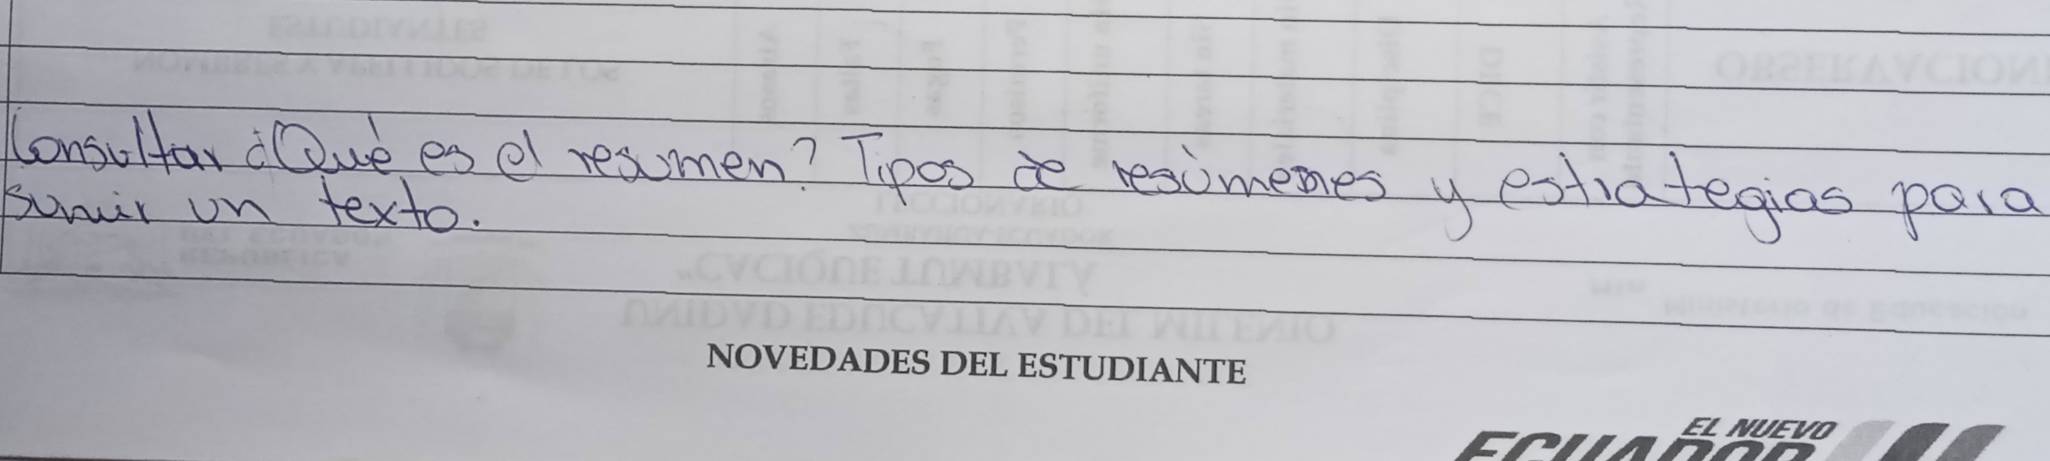 Consultar ¿Qué es el resumen? Tipos de resúmenes y estrategias para
sumir un texto.
NOVEDADES DEL ESTUDIANTE
EL NUEVO
ECUADOR